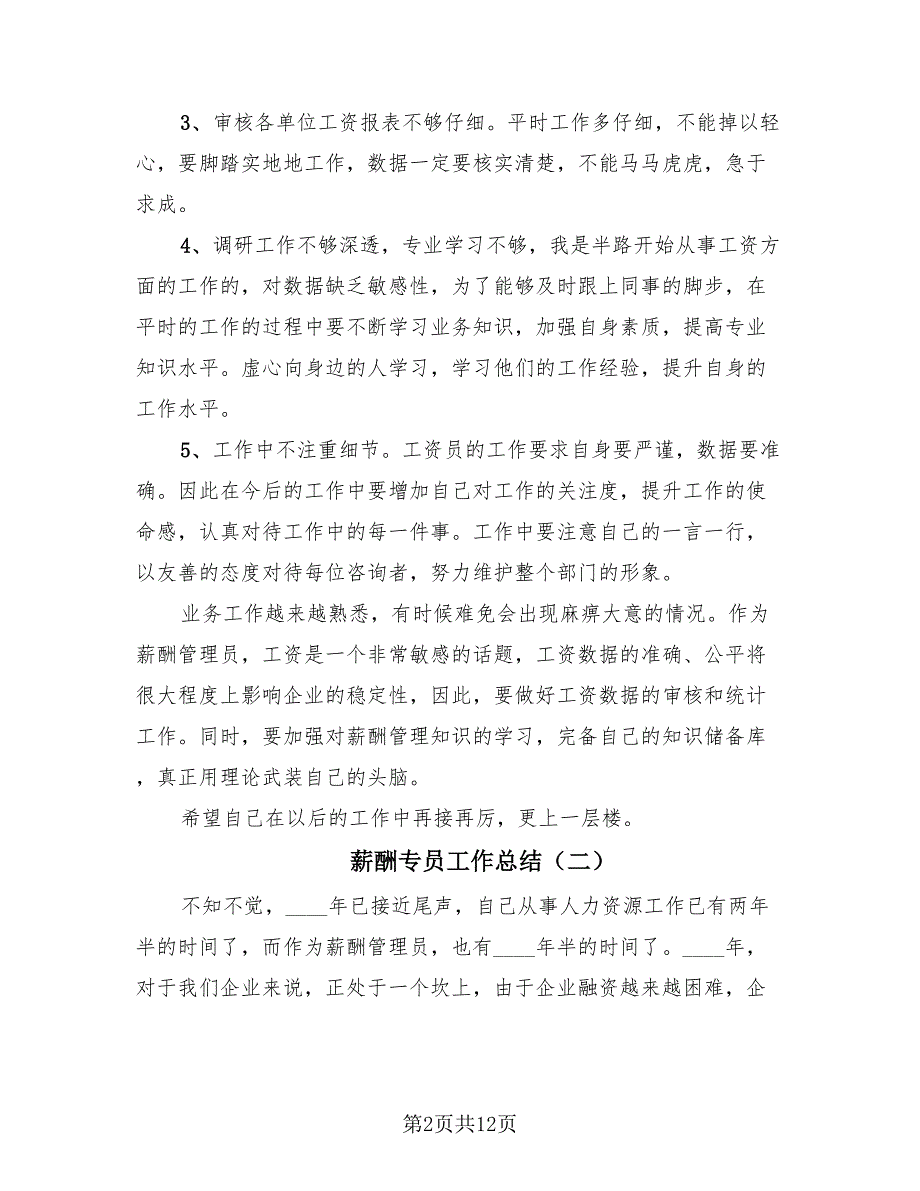 3、审核各单位工资报表不够仔细。平时工作多仔细，不能掉以轻
心，要脚踏实地地工作，数据一定要核实清楚，不能马马虎虎，急于
求成。
4、调研工作不够深透，专业学习不够，我是半路开始从事工资方
面的工作的，对数据缺乏敏感性，为了能够及时跟上同事的脚步，在
平时的工作的过程中要不断学习业务知识，加强自身素质，提高专业
知识水平。虚心向身边的人学习，学习他们的工作经验，提升自身的
工作水平。
5、工作中不注重细节。工资员的工作要求自身要严谨，数据要准
确。因此在今后的工作中要增加自己对工作的关注度，提升工作的使
命感，认真对待工作中的每一件事。工作中要注意自己的一言一行，
以友善的态度对待每位咨询者，努力维护整个部门的形象。
业务工作越来越熟悉，有时候难免会出现麻痹大意的情况。作为
薪酬管理员，工资是一个非常敏感的话题，工资数据的准确、公平将
很大程度上影响企业的稳定性，因此，要做好工资数据的审核和统计
工作。同时，要加强对薪酬管理知识的学习，完备自己的知识储备库
，真正用理论武装自己的头脑。
希望自己在以后的工作中再接再厉，更上一层楼。
薪酬专员工作总结（二）
不知不觉，____年已接近尾声，自己从事人力资源工作已有两年
半的时间了，而作为薪酬管理员，也有____年半的时间了。____年，
对于我们企业来说，正处于一个坎上，由于企业融资越来越困难，企
第2页共12页